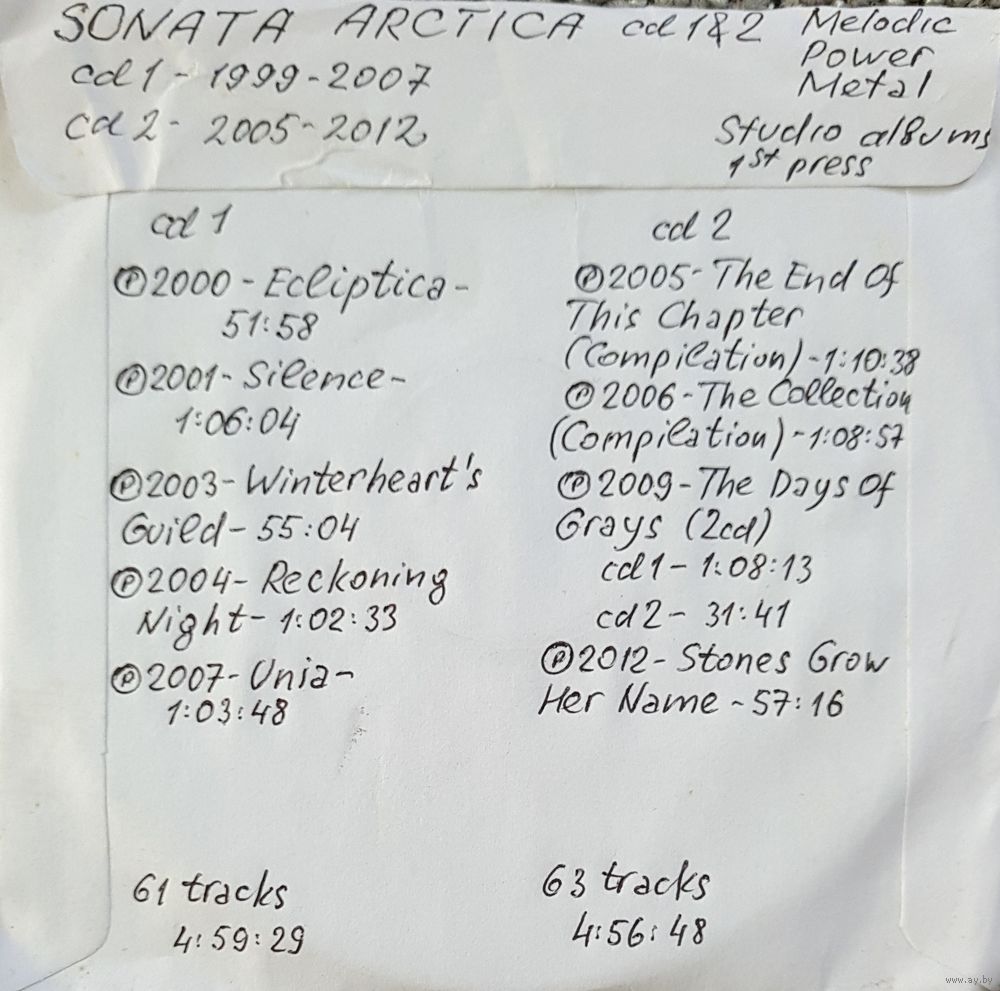 SONATA ARCTICA cd 1&2 Melodic
Power
Metal
cd 1 - 1999-2007
cd 2 - 2005-2012
Studio albums
1st press
cd 1
Ⓟ2000 - Ecliptica -
51:58
Ⓟ2001 - Silence -
1:06:04
Ⓟ2003 - Winterheart's
Guild - 55:04
Ⓟ2004 - Reckoning
Night - 1:02:33
Ⓟ2007 - Unia -
1:03:48
61 tracks
4:59:29
cd 2
Ⓟ2005 - The End Of
This Chapter
(Compilation) - 1:10:38
Ⓟ2006 - The Collection
(Compilation) - 1:08:57
Ⓟ2009 - The Days Of
Grays (2cd)
cd 1 - 1:08:13
cd 2 - 31:41
Ⓟ2012 - Stones Grow
Her Name - 57:16
63 tracks
4:56:48
www.ay.by